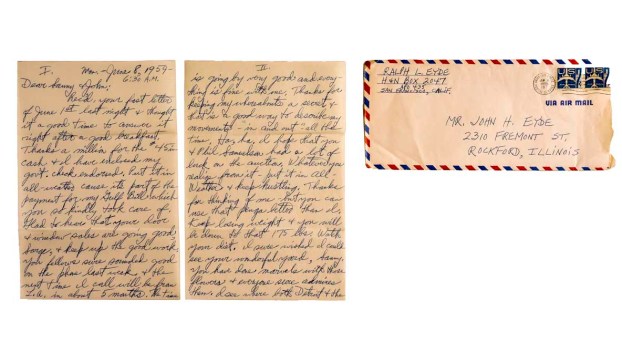 I.
Mon. - June 8, 1959 -
6:30 A.M.
Dear Sammy & John;
Rec'd. your fast letter
of June 1st last night & thought
it a good time to answer it
right after a good breakfast.
Thanks a million for the $45.00
cash & I have enclosed my
govt. check endorsed. Put it in
all-weather cause its part of the
payment for my Gulf Bill which
you so kindly took care of.
Glad to hear that your door
& window sales are going good
& keep up the good work.
You fellows sure sounded good
on the phone last week, & the
next time I call will be from
in about 5 months. The time
II.
is going by very good and every-
thing is fine with me. Thanks for
keeping my whereabouts a secret &
that is a good way to describe my
movement - in and out - all the
time. Ha, ha, I hope that you
& Phil had a lot of
luck on the auction. Whatever you
realize from it - put it in All-
Weather & keep hustling. Thanks
for thinking of me but you can
use that better than I.
Keep losing weight & you will
be down to that 175 lbs. with
your diet. I sure wished I could
see your wonderful yard, Sammy,
you have done miracles with those
flowers & everyone sure admires
them. I see where both Detroit & the
RALPH L EYDE
H&N BOX 2047
NO. 933
SAN FRANCISCO, CALIF.
VIA AIR MAIL
MR. JOHN H. EYDE
2310 FREMONT ST,
ROCKFORD, ILLINOIS